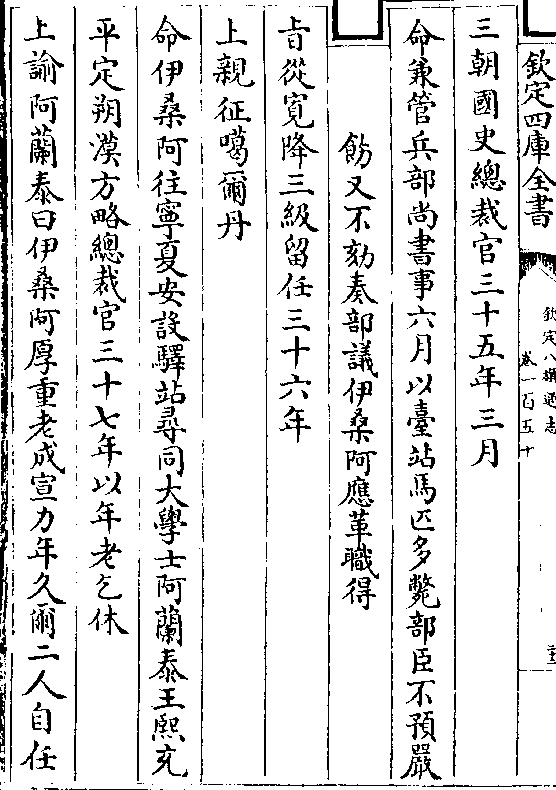 欽定四庫全書
欽定八旗通志
卷一百五十
三朝國史總裁官三十五年三月
命兼管兵部尚書事六月以臺站馬匹多斃部臣不預嚴
飭又不劾奏部議伊桑阿應革職得
㫖從寛降三級留任三十六年
上親征噶爾丹
命伊桑阿往寧夏安設驛站尋同大學士阿蘭泰王熙充
平定朔漠方略總裁官三十七年以年老乞休
上諭阿蘭泰曰伊桑阿厚重老成宣力年久爾二人自任